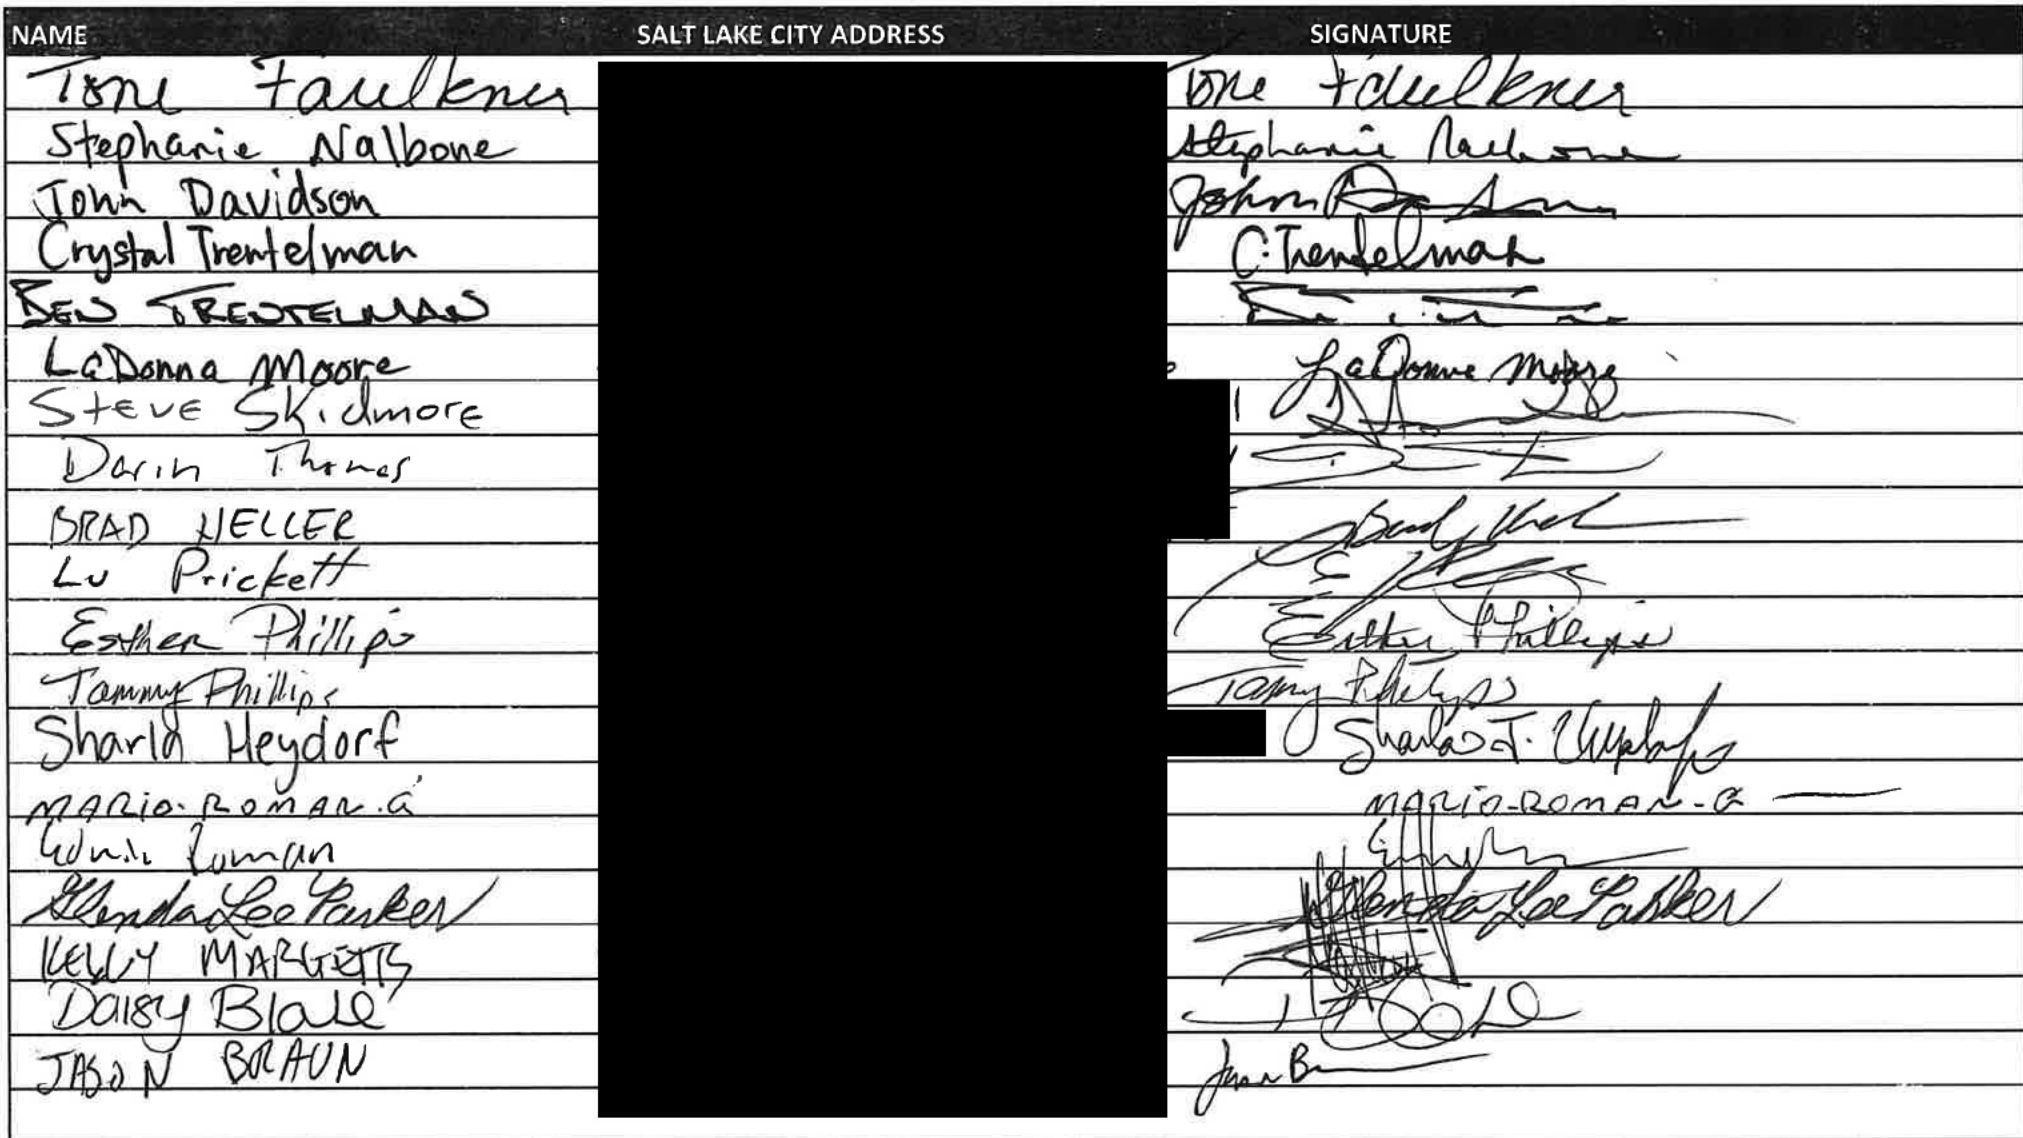 NAME SALT LAKE CITY ADDRESS SIGNATURE
Tone Faulkner Tone Faulkner
Stephanie Nalbone Stephanie Nalbone
John Davidson John
Crystal Trentelman C. Trentelman
BEN TRENTELMAN
LaDonna Moore LaDonna Moore
Steve Skidmore
Darin Thomas
BRAD HELLER Brad
Lu Prickett
Esther Phillips Esther Phillips
Tammy Phillips Tammy Phillips
Sharla Heydorf Sharla T.
MARIO-ROMAN.G MARIO-ROMAN-G
Edwin Roman
Glenda Lee Parker Glenda Lee Parker
KELLY MARGETTS
Daisy Blake
JASON BRAUN Jason B